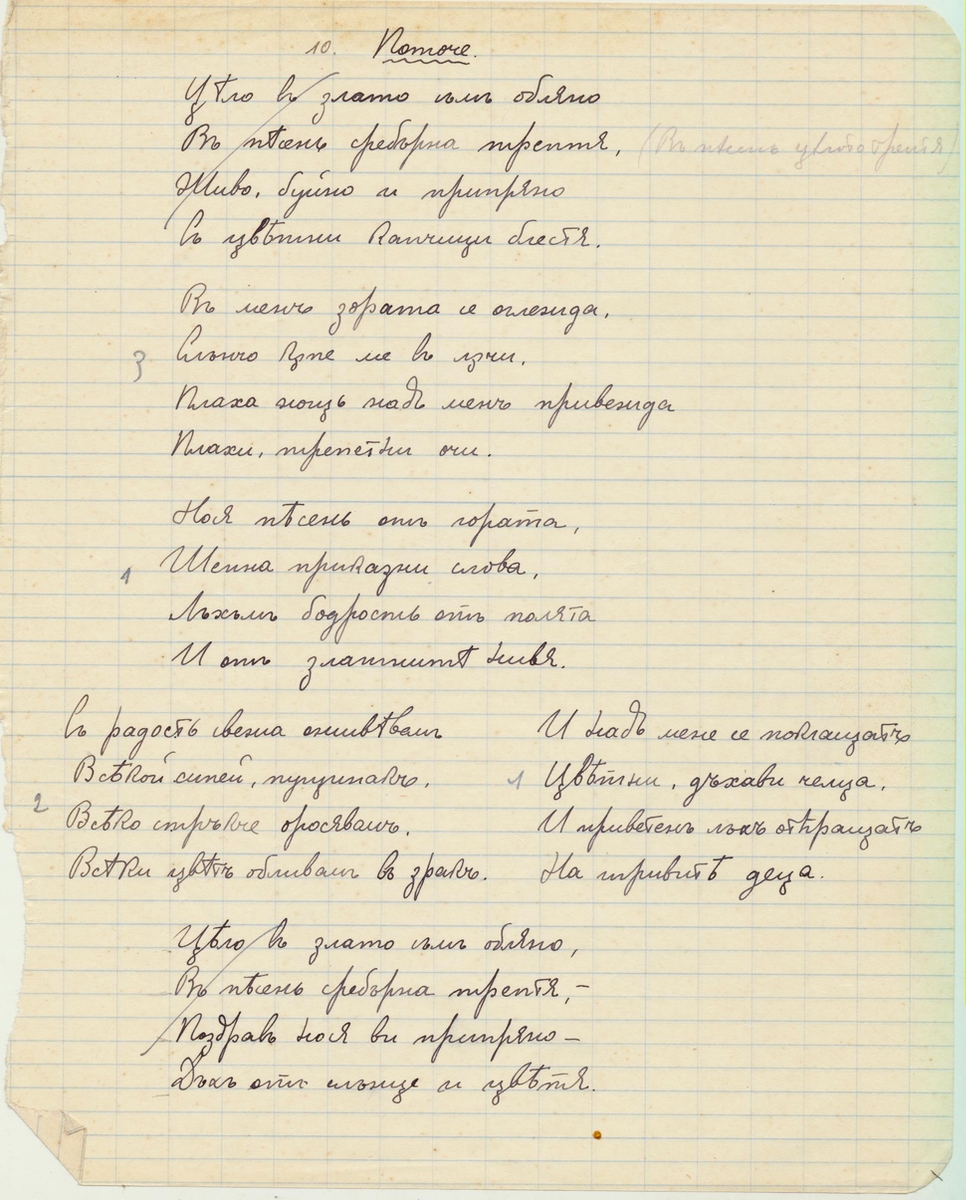 10. Поточе.
Цѣло въ злато съмъ обляно
Въ пѣсень сребърна трептя, (Въ пѣсень цѣло
Живо, буйно и припряно
Съ цвѣтни капчици блестя.
Въ менъ зората се оглежда,
3 Слънчо къпе ме въ лъчи,
Плаха нощь надъ менъ привежда
Плахи, трепетни очи.
Нося пѣсень отъ гората,
1 Шепна приказни слова,
Лъхамъ бодрость отъ полята
И отъ златнитѣ нивя.
Съ радость свежа оживѣвамъ
Всѣкой синей, пуцинакъ,
2 Всѣко стръкче оросявамъ,
Всѣки цвѣтъ обливамъ въ зракъ.
И надъ мене се поклащатъ
1 Цвѣтни, дъхави челца,
И приветенъ лъхъ отвращатъ
На игривитѣ деца.
Цѣло въ злато съмъ обляно,
Въ пѣсень сребърна трептя, –
Поздравъ нося ви припряно –
Дъхъ отъ слънце и цвѣтя.